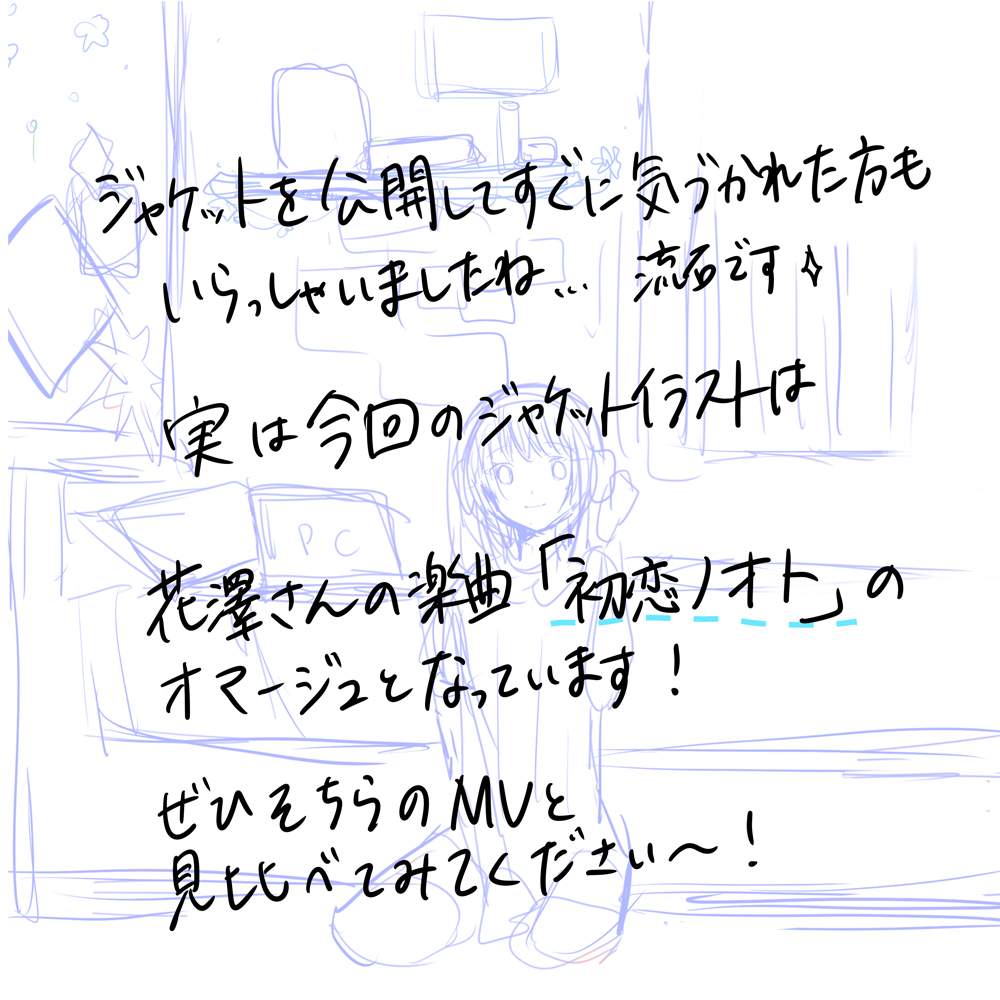 ジャケットを公開してすぐに気づかれた方も
いらっしゃいましたね… 流石です✧
実は今回のジャケットイラストは
PC
花澤さんの楽曲「初恋ノオト」の
オマージュとなっています！
ぜひそちらのMVと
見比べてみてください〜！